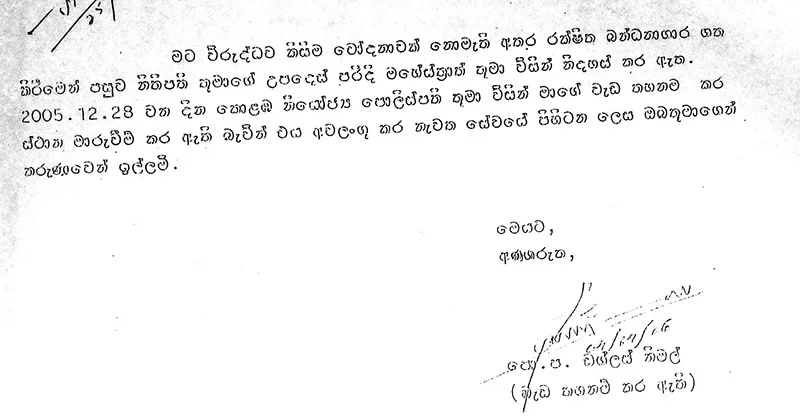 මට විරුද්ධව කිසිම චෝදනාවක් නොමැති අතර රක්ෂිත බන්ධනාගාර ගත
කිරීමෙන් පසුව නීතිපති තුමාගේ උපදෙස් පරිදි මහේස්ත්‍රාත් තුමා විසින් නිදහස් කර ඇත.
2005.12.28 වන දින කොළඹ නියෝජ්‍ය පොලිස්පති තුමා විසින් මාගේ වැඩ තහනම කර
ස්ථාන මාරුවීම් කර ඇති බැවින් එය අවලංගු කර නැවත සේවයේ පිහිටන ලෙස ඔබතුමාගෙන්
කරුණාවෙන් ඉල්ලමි.
මෙයට,
අණගරුක,
පො.ප. ඩග්ලස් නිමල්
(වැඩ තහනම් කර ඇති)